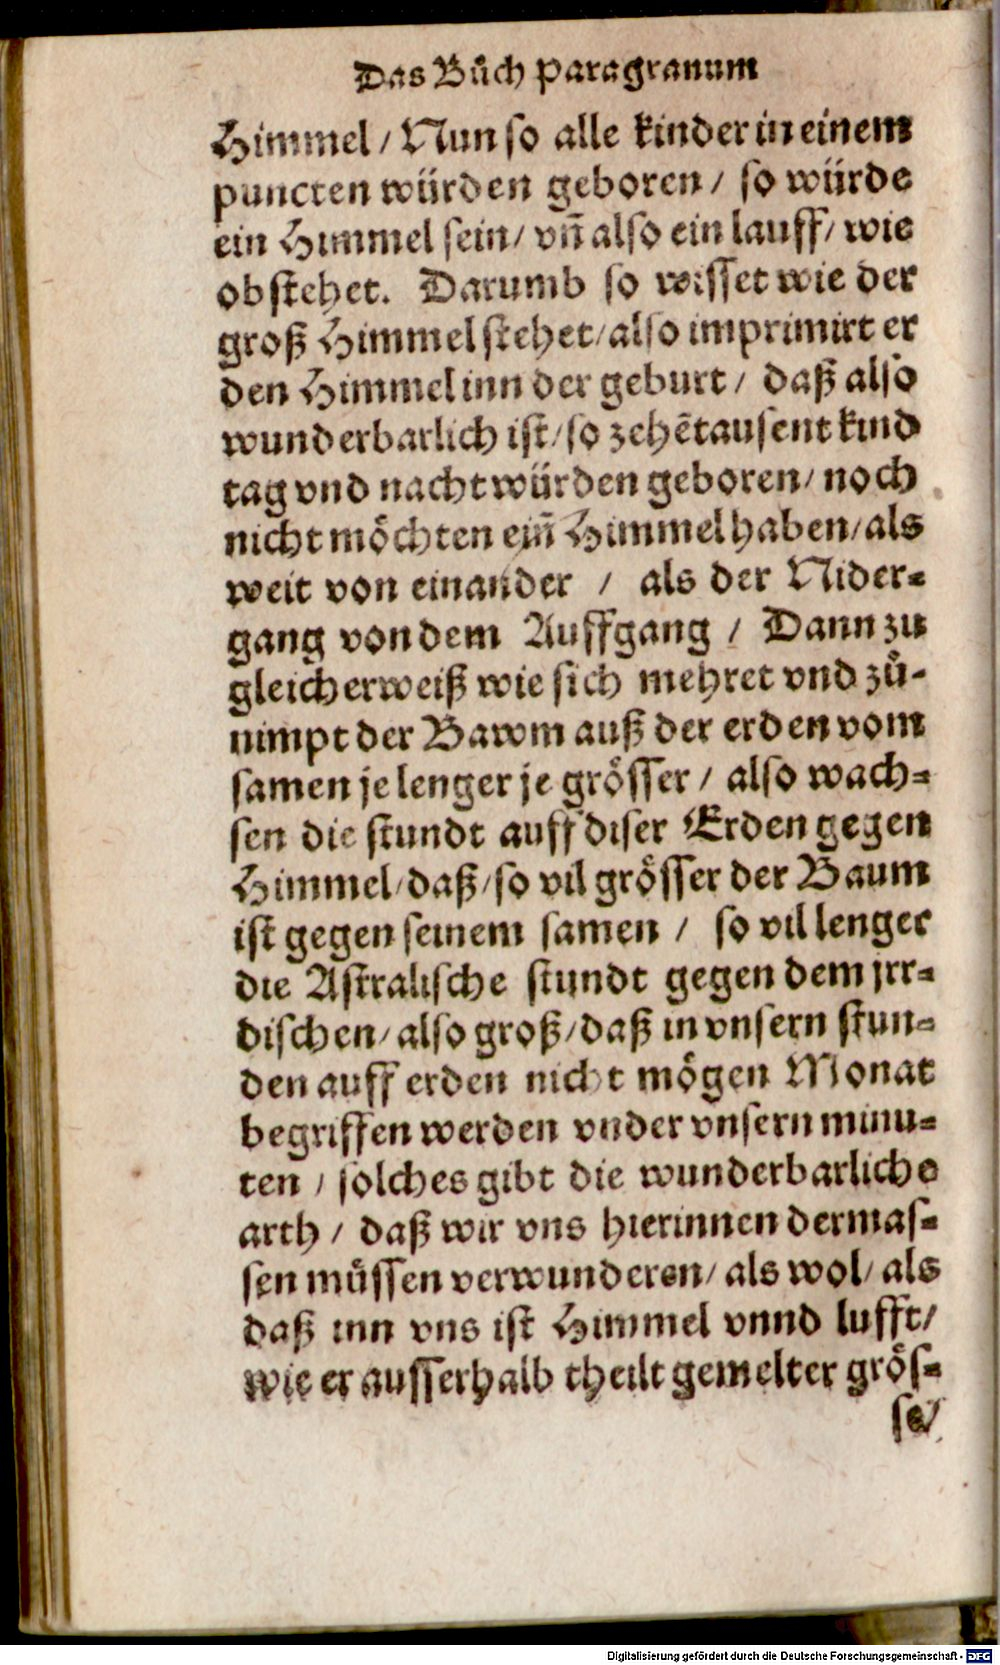 Das Bůch Paragranum
Himmel / Nun so alle kinder in einem
puncten würden geboren / so würde
ein Himmel sein / vñ also ein lauff / wie
obstehet. Darumb so wisset wie der
groß Himmel stehet / also imprimirt er
den Himmel inn der geburt / daß also
wunderbarlich ist / so zehẽtausent kind
tag vnd nacht würden geboren / noch
nicht möchten ein̄ Himmel haben / als
weit von einander / als der Nider-
gang von dem Auffgang / Dann zu
gleicherweiß wie sich mehret vnd zů-
nimpt der Bawm auß der erden vom
samen je lenger je grösser / also wach-
sen die stundt auff diser Erden gegen
Himmel / daß / so vil grösser der Baum
ist gegen seinem samen / so vil lenger
die Astralische stundt gegen dem jrr-
dischen / also groß / daß in vnsern stun-
den auff erden nicht mögen Monat
begriffen werden vnder vnsern minu-
ten / solches gibt die wunderbarliche
arth / daß wir vns hierinnen dermas-
sen müssen verwunderen / als wol / als
daß inn vns ist Himmel vnnd lufft /
wie er ausserhalb theilt gemelter grös-
se /
Digitalisierung gefördert durch die Deutsche Forschungsgemeinschaft - DFG